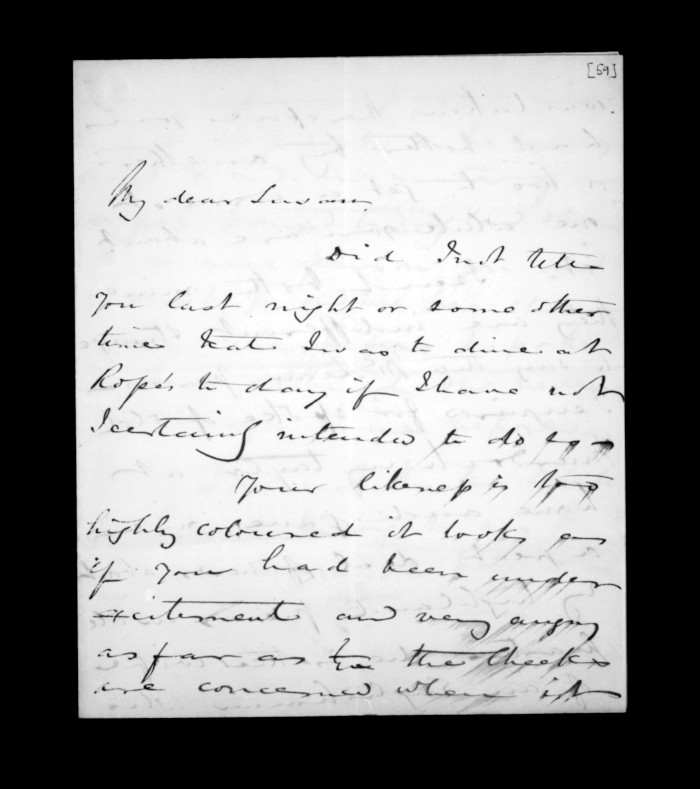 [59]
My dear Susan
Did I not tell
you last night or some other
time that I was to dine at
Rope's to day if I have not
I certainly intended to do so
Your likeness is too
highly coloured it looks as
if you had been under
excitement and very angry
as far as the Cheeks
are concerned when it